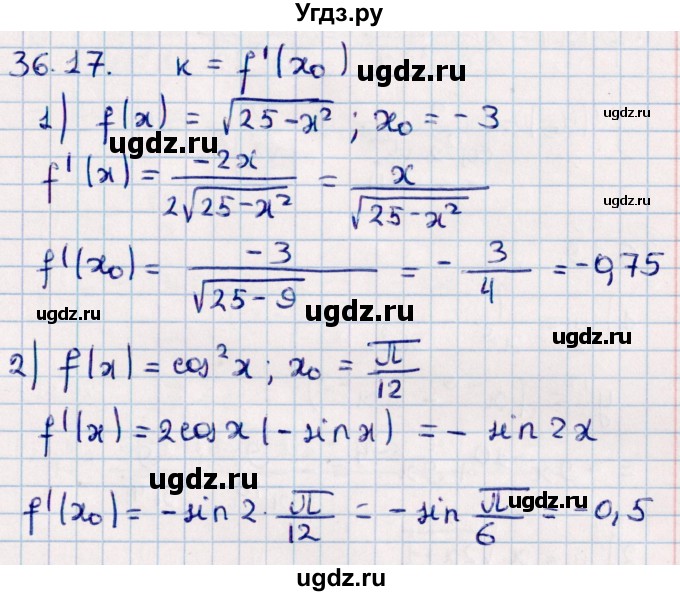 Угдз.ру
36.17. к = f'(x₀)
ugdz.ru
1) f(x) = √(25-x²); x₀ = -3
ugdz.ru
f'(x) = -2x/(2√(25-x²)) = x/√(25-x²)
ugdz.ru
f'(x₀) = -3/√(25-9) = -3/4 = -0,75
ugdz.ru
ugdz.ru
ugdz.ru
2) f(x) = cos²x; x₀ = π/12
ugdz.ru
f'(x) = 2cosx(-sinx) = -sin2x
ugdz.ru
ugdz.ru
f'(x₀) = -sin2·π/12 = -sin π/6 = -0,5
ugdz.ru
ugdz.ru